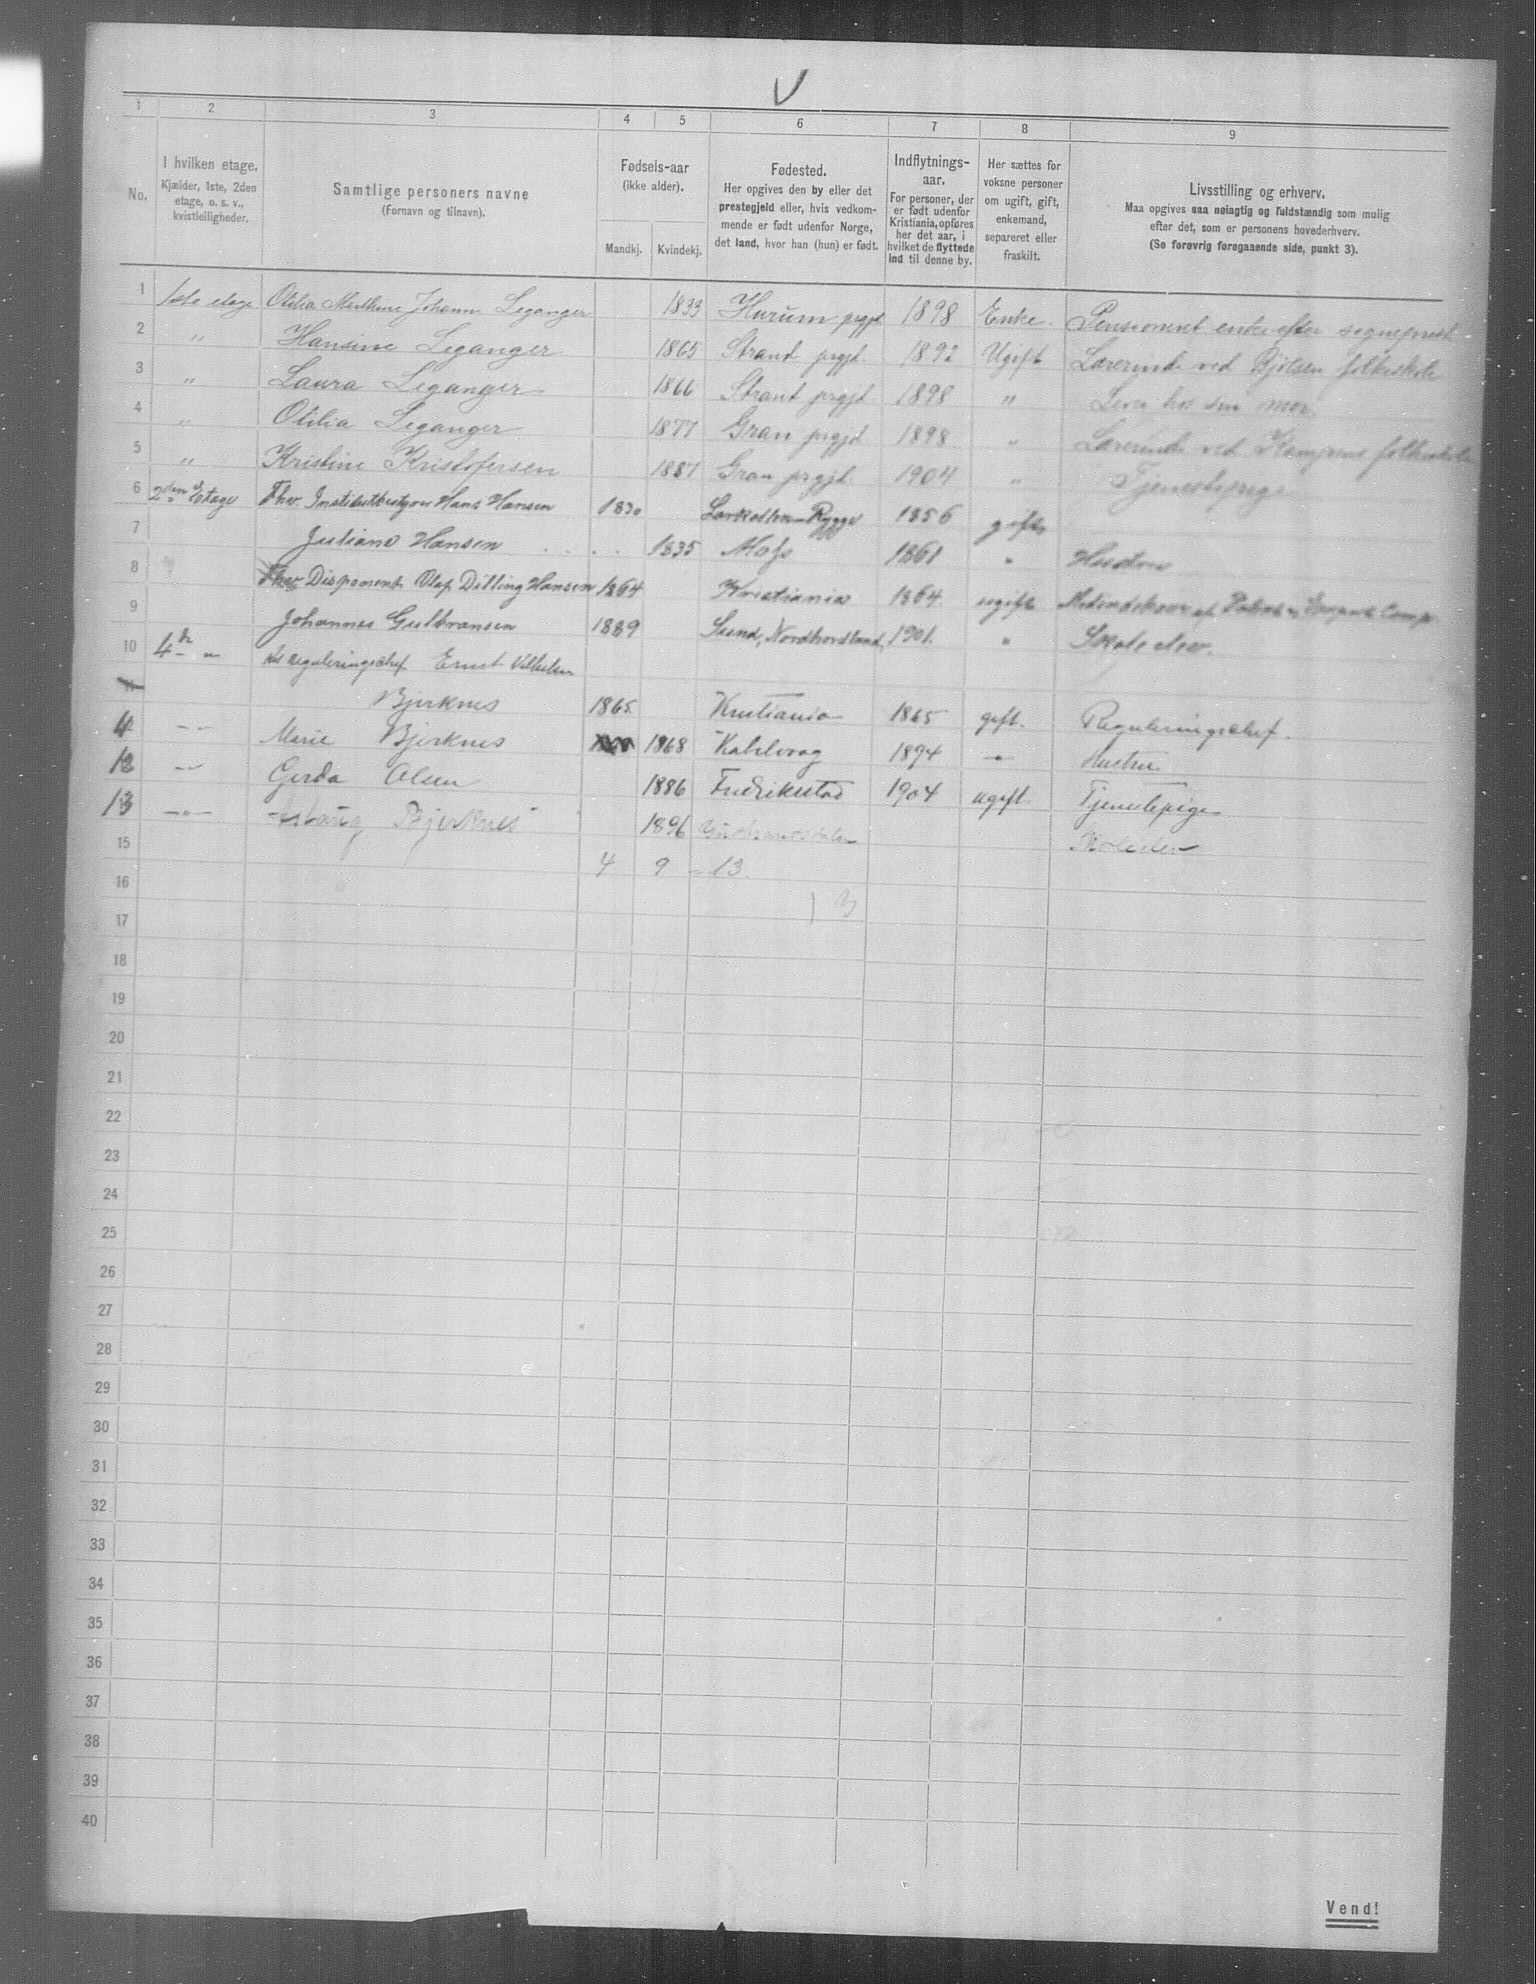 1 2 3 4 5 6 7 8 9
No.
I hvilken etage.
Kjælder, 1ste, 2den
etage, o. s. v.,
kvistleiligheder.
Samtlige personers navne
(Fornavn og tilnavn).
Fødsels-aar
(ikke alder).
Mandkj. Kvindekj.
Fødested.
Her opgives den by eller det
prestegjeld eller, hvis vedkom-
mende er født udenfor Norge,
det land, hvor han (hun) er født.
Indflytnings-
aar.
For personer, der
er født udenfor
Kristiania, opføres
her det aar, i
hvilket de flyttede
ind til denne by.
Her sættes for
voksne personer
om ugift, gift,
enkemand,
separeret eller
fraskilt.
Livsstilling og erhverv.
Maa opgives saa nøiagtig og fuldstændig som mulig
efter det, som er personens hovederhverv.
(Se forøvrig foregaaende side, punkt 3).
1 1ste etage Otilia Johanne Leganger 1833 Hurum prgjd 1898 Enke Pensioneret enke efter sogneprest
2 " Hansine Leganger 1865 Strand prgjd. 1892 Ugift Lærerinde ved Bjölsen folkeskole
3 " Laura Leganger 1866 Strand prgjd. 1898 " Lever hos sin mor.
4 " Otilia Leganger 1877 Gran prgjd. 1898 " Lærerinde ved Kampens folkeskole
5 " Kristine Kristofersen 1887 Gran prgjd. 1904 " Tjenestepige
6 2den Etage Fhv. Institutbestyrer Hans Hansen 1830 Rygge 1856 gift
7 Juliane Hansen 1835 Moss 1861 " Hustru
8 Disponent Olaf Ditting Hansen 1864 Kristiania 1864 ugift Comp
9 Johannes Gulbransen 1889 Sund, Nordhordland, 1901. " Skoleelev.
10 4de " reguleringschef Ernst Vilhelm
Bjerknes 1865 Kristiania 1865 gift. Reguleringschef.
Marie Bjerknes 1868 1894 " Hustru
12 Gerda Olsen 1886 Fredrikstad 1904 ugift Tjenestepige
13 Bjerknes 1896 Skoleelev
15 4 9 = 13.
16
17
18
19
20
21
22
23
24
25
26
27
28
29
30
31
32
33
34
35
36
37
38
39
40
Vend!